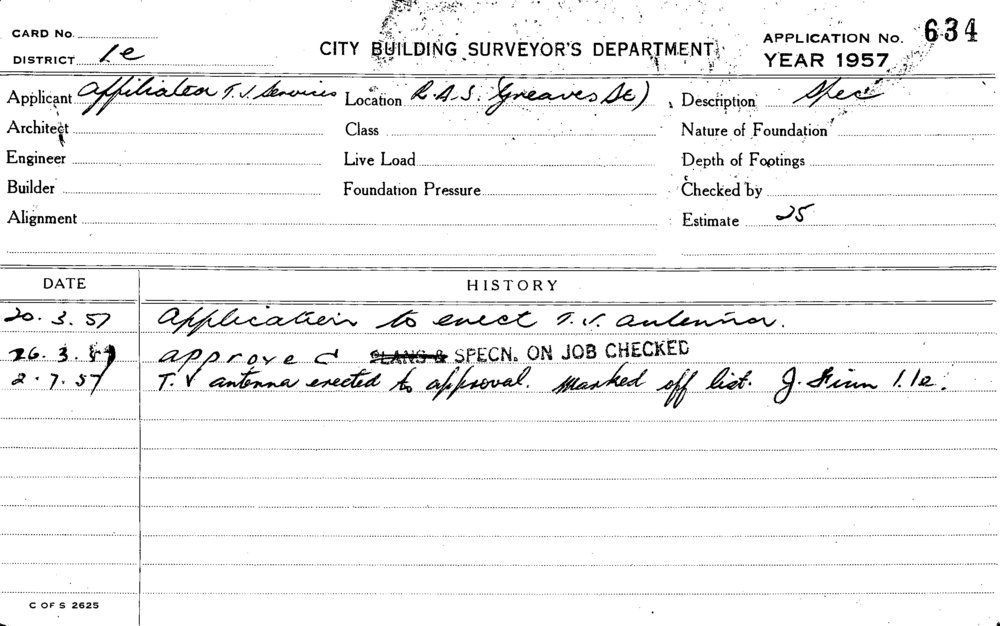 CARD No.
DISTRICT 1e
CITY BUILDING SURVEYOR'S DEPARTMENT
APPLICATION No. 634
YEAR 1957
Applicant Affiliated T.V Services Location R.A.S. (Greaves St) Description Spec
Architect Class Nature of Foundation
Engineer Live Load Depth of Footings
Builder Foundation Pressure Checked by
Alignment Estimate 25
DATE HISTORY
20.3.57 Application to erect T.V. antenna.
26.3.57 approved PLANS & SPECN. ON JOB CHECKED
2.7.57 T.V antenna erected to approval. Marked off list. J. Finn 1.1e.
C OF S 2625